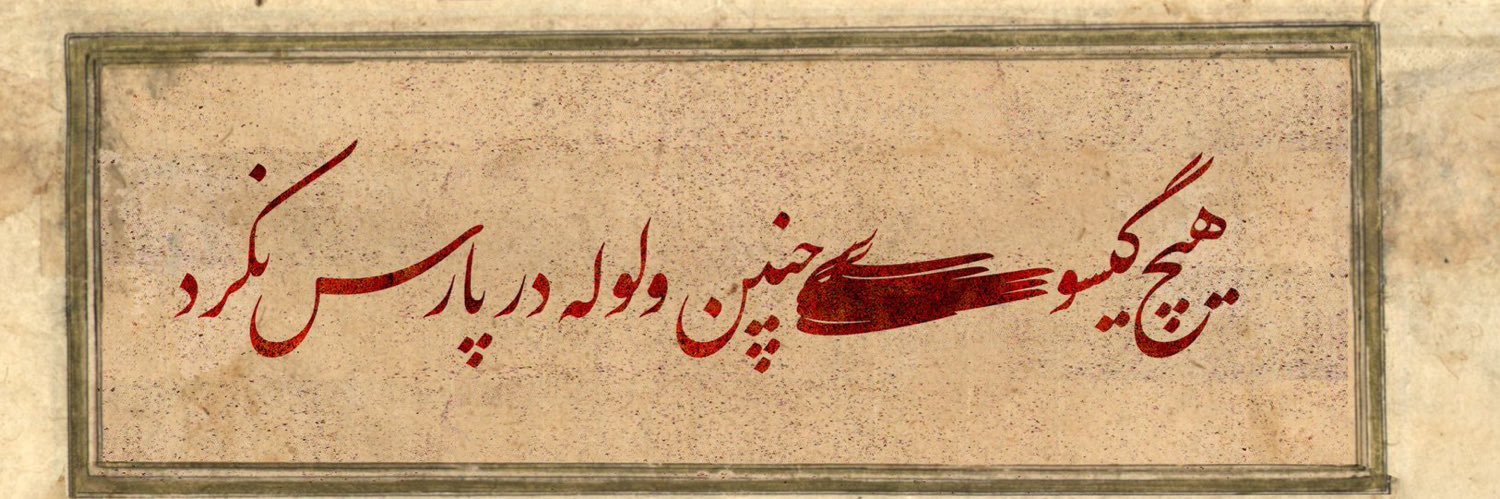 هیچ گیسویی چنین ولوله در پارس نکرد